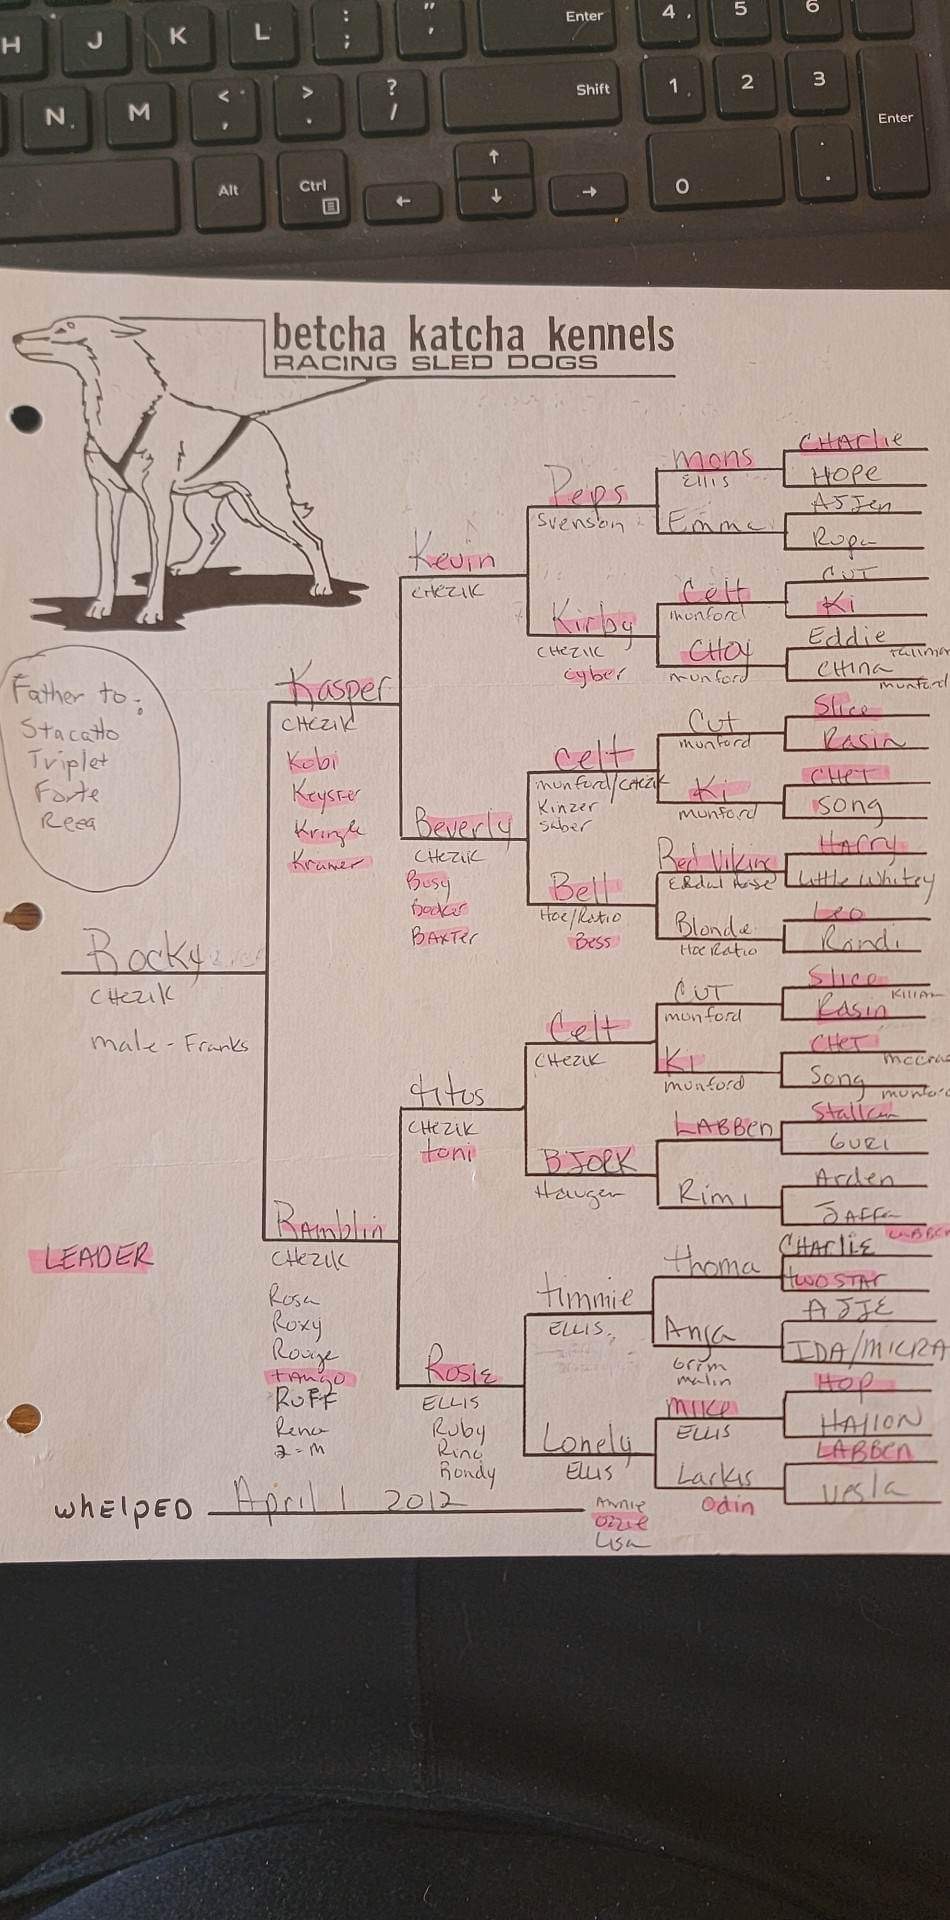 H J K L : ; " ' Enter 4 5 6
N M < , > . ? / Shift 1 2 3 Enter
Alt Ctrl ← ↑ ↓ → 0 .
betcha katcha kennels
RACING SLED DOGS
Father to:
Stacatto
Triplet
Forte
Reea
Rocky
CHEZIK
male - Franks
LEADER
Kasper
CHEZIK
Kobi
Keyster
Kringle
Kramer
Ramblin
CHEZIK
Rosa
Roxy
Rouge
tAngo
RUFF
Rena
2-M
Kevin
CHEZIK
Beverly
CHEZIK
Busy
Booker
BAXTER
titus
CHEZIK
toni
Rosie
ELLIS
Ruby
Rino
Rondy
Peps
Svenson
Kirby
CHEZIK
Cyber
Celt
munford/CHEZIK
Kinzer
Saber
Bell
Hoe/Ratio
Bess
Celt
CHEZIK
BJORK
Haugen
timmie
ELLIS
Lonely
ELLIS
Annie
Ozzie
Lisa
mons
ELLIS
Emma
Celt
munford
CHOY
munford
CUT
munford
Ki
munford
Red Viking
Blonde
Hoe Ratio
CUT
munford
Ki
munford
LABBEN
Rimi
thoma
Anja
Grim
malin
MIKE
ELLIS
Larkis
Odin
CHARlie
HOPE
AJJen
Ropa
CUT
Ki
Eddie
CHINA
munford
Slice
Rasin
CHET
Song
Harry
Little Whitey
Leo
Randi
Slice
Rasin
KILLIAN
CHET
Song
munford
GURI
Arden
JAFFA
LABBEN
CHARLIE
tWOSTAR
AJJE
IDA/MICRA
HOP
HALLON
LABBEN
Vesla
WHELPED April 1 2012